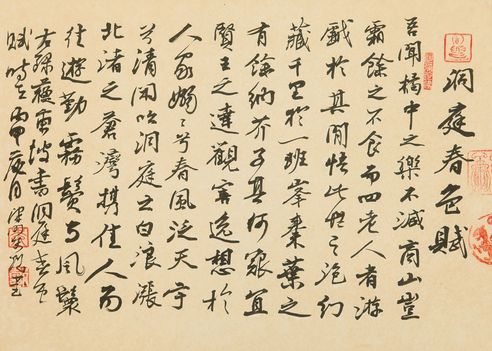 洞庭春色賦
吾聞橘中之樂不減商山豈
霜餘之不食而四老人者游
戲於其間悟此世之泡幻
藏千里於一班舉棗葉之
有餘納芥子其何艱宜
賢王之達觀寄逸想於
人寰嫋嫋兮春風泛天宇
兮清閑吹洞庭之白浪漲
北渚之蒼灣攜佳人而
往遊勤霧鬢与風鬟
右録蘇東坡書洞庭春色
賦時在丙申